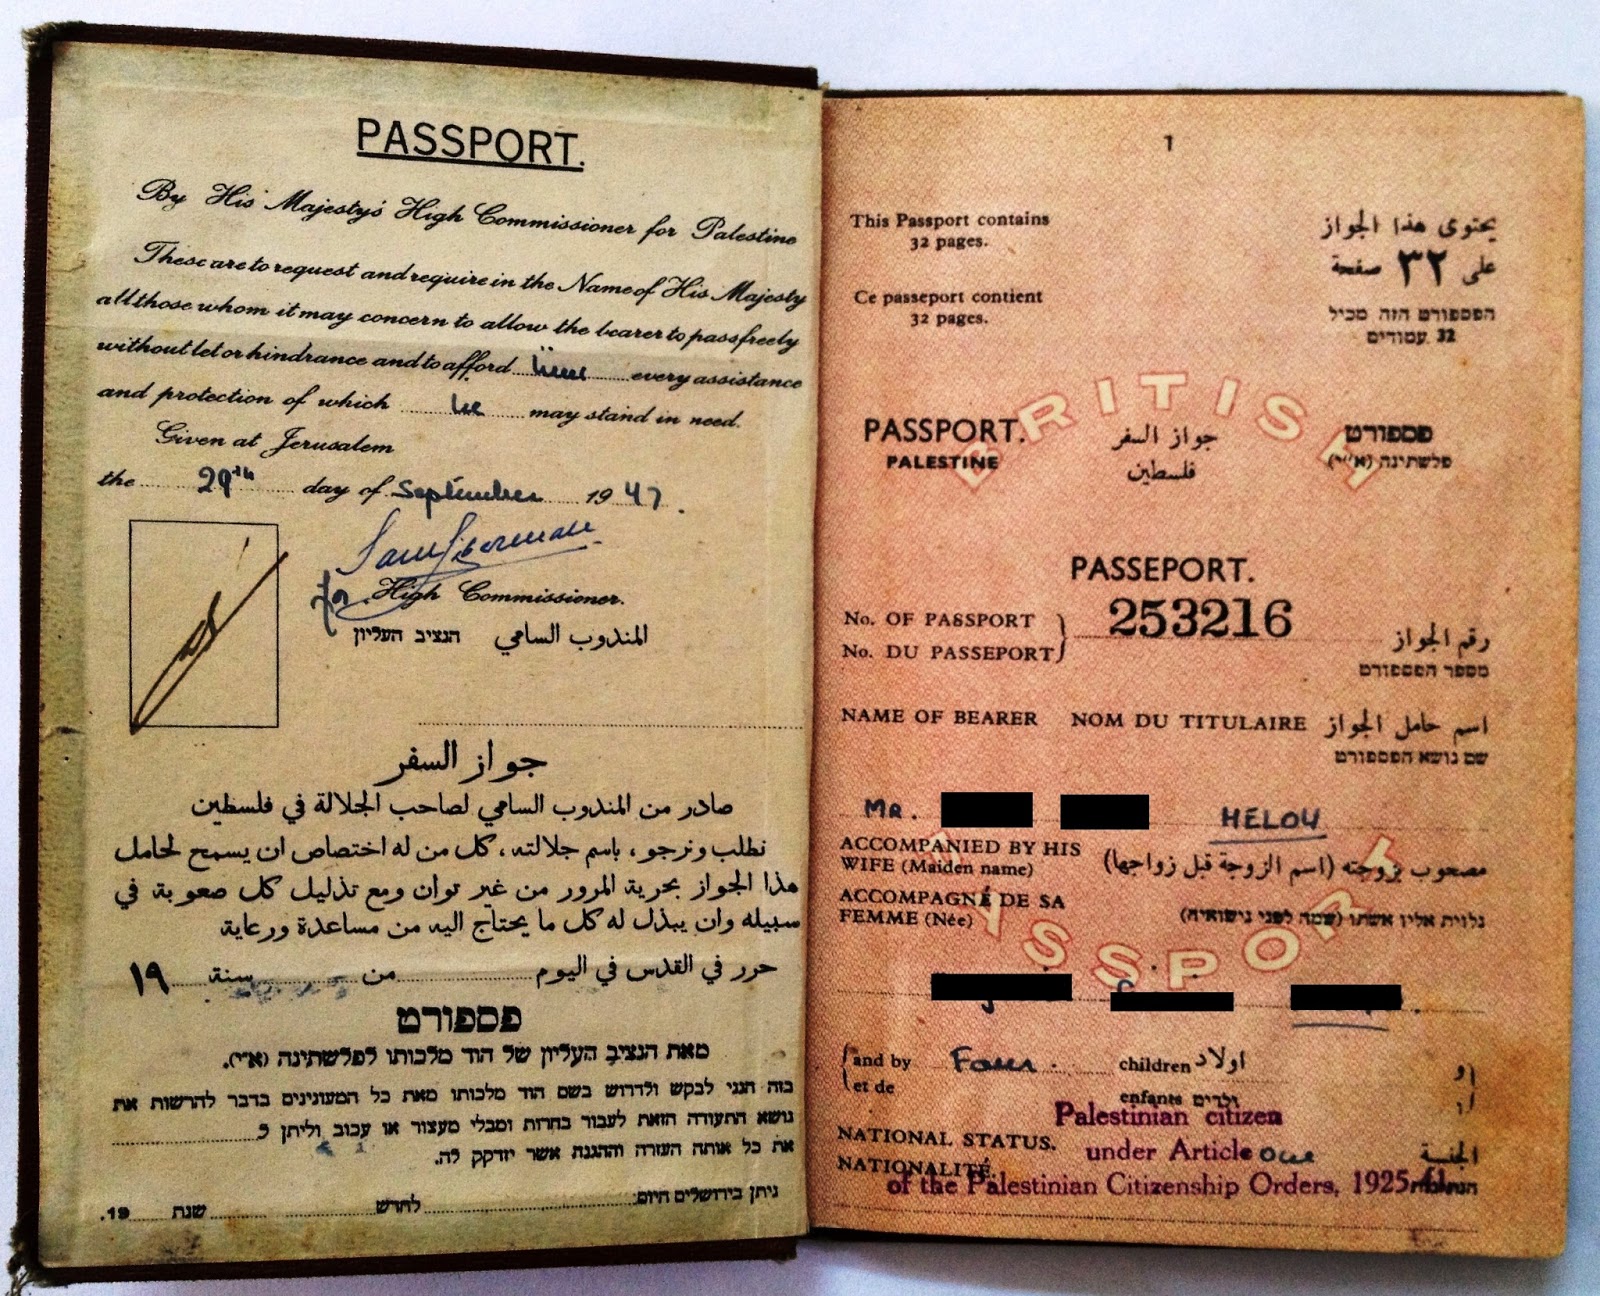 PASSPORT.
By His Majesty's High Commissioner for Palestine
These are to request and require in the Name of His Majesty
all those whom it may concern to allow the bearer to pass freely
without let or hindrance and to afford every assistance
and protection of which may stand in need.
Given at Jerusalem
the 29th day of September 1947.
for High Commissioner.
הנציב העליון المندوب السامي
جواز السفر
صادر من المندوب السامي لصاحب الجلالة في فلسطين
نطلب ونرجو، باسم جلالته، كل من له اختصاص ان يسمح لحامل
هذا الجواز بحرية المرور من غير توان ومع تذليل كل صعوبة في
سبيله وان يبذل له كل ما يحتاج اليه من مساعدة ورعاية
حرر في القدس في اليوم من سنة ١٩
פספורט
מאת הנציב העליון של הוד מלכותו לפלשתינה (א״י).
בזה הנני לבקש ולדרוש בשם הוד מלכותו מאת כל המעונינים בדבר להרשות את
נושא התעודה הזאת לעבור בחרות ומבלי מעצור או עכוב וליתן ל
את כל אותה העזרה וההגנה אשר יזדקק לה.
ניתן בירושלים היום לחדש שנת 19.
1
This Passport contains
32 pages.
يحتوى هذا الجواز
على ٣٢ صفحة
Ce passeport contient
32 pages.
הפספורט הזה מכיל
32 עמודים
BRITISH
PASSPORT. جواز السفر פספורט
PALESTINE فلسطين פלשתינה (א״י)
PASSEPORT.
No. OF PASSPORT
No. DU PASSEPORT
253216
رقم الجواز
מספר הפספורט
NAME OF BEARER NOM DU TITULAIRE اسم حامل الجواز
שם נושא הפספורט
MR. HELOU
ACCOMPANIED BY HIS
WIFE (Maiden name)
مصحوب بزوجته (اسم الزوجة قبل زواجها)
ACCOMPAGNÉ DE SA
FEMME (Née)
נלוית אליו אשתו (שמה לפני נישואיה)
PASSPORT
and by Four. children اولاد و
et de enfants ילדים ו
Palestinian citizen
under Article one
of the Palestinian Citizenship Orders, 1925-41
NATIONAL STATUS. الجنسية
NATIONALITÉ.